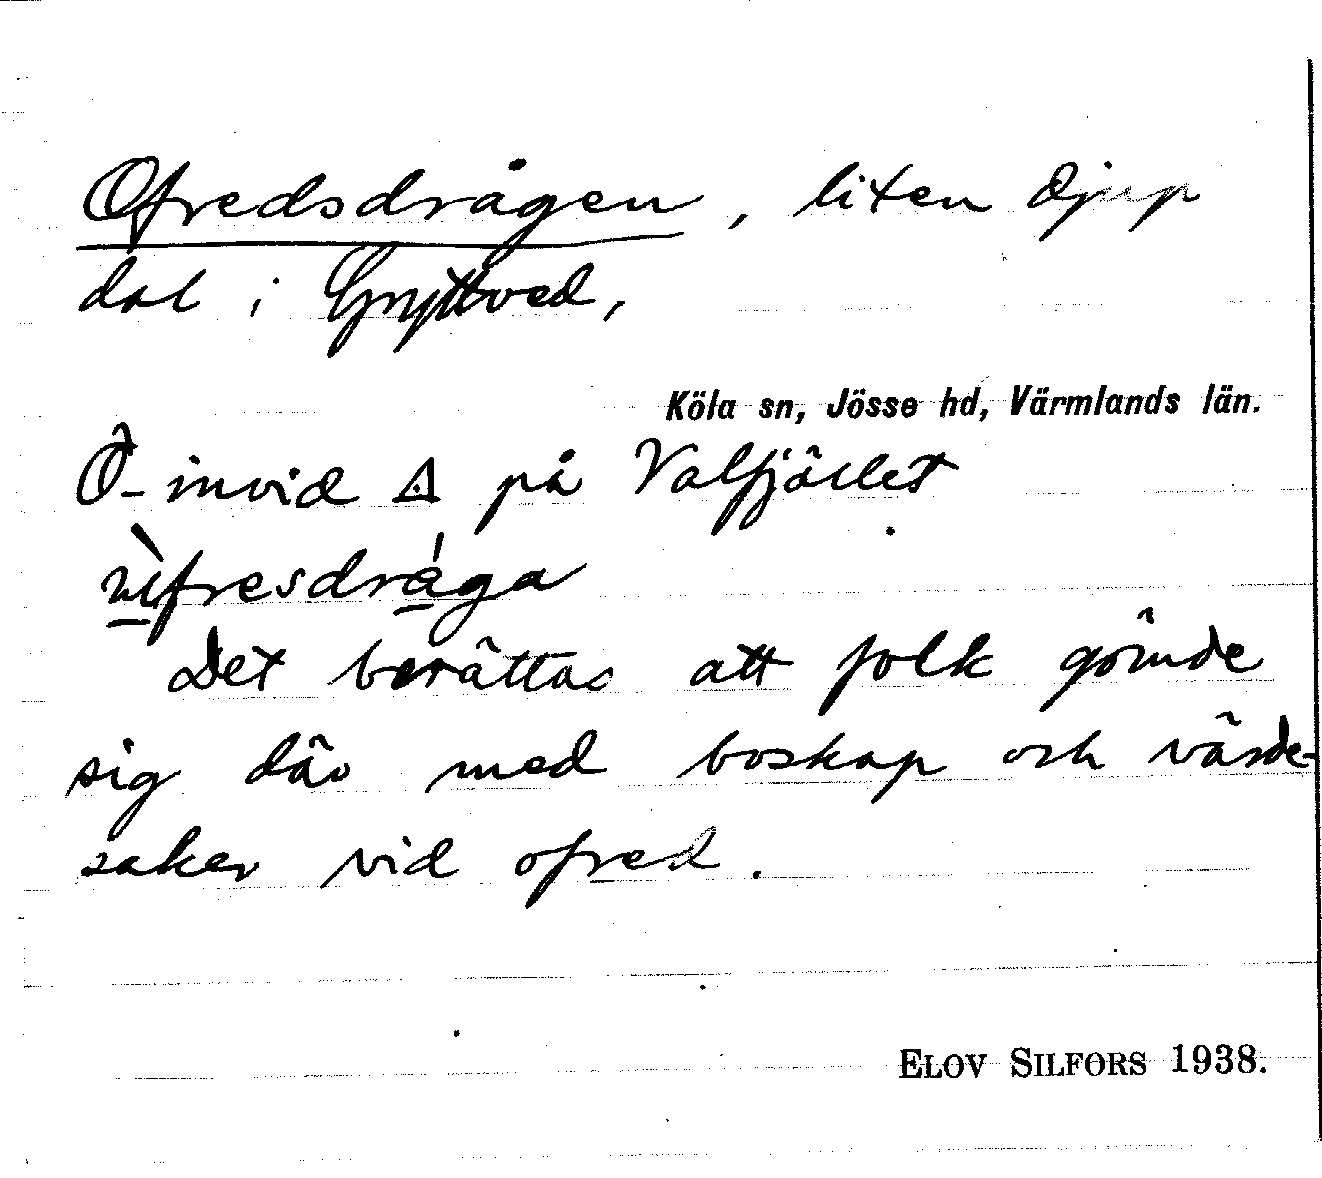 Ofredsdrågen, liten djup
dal i Gryttved,
Köla sn, Jösse hd, Värmlands län.
Ö- invid ◬ på Valfjället
ùfresdrága
Det berättas att folk gömde
sig där med boskap och värde-
saker vid ofred.
ELOV SILFORS 1938.